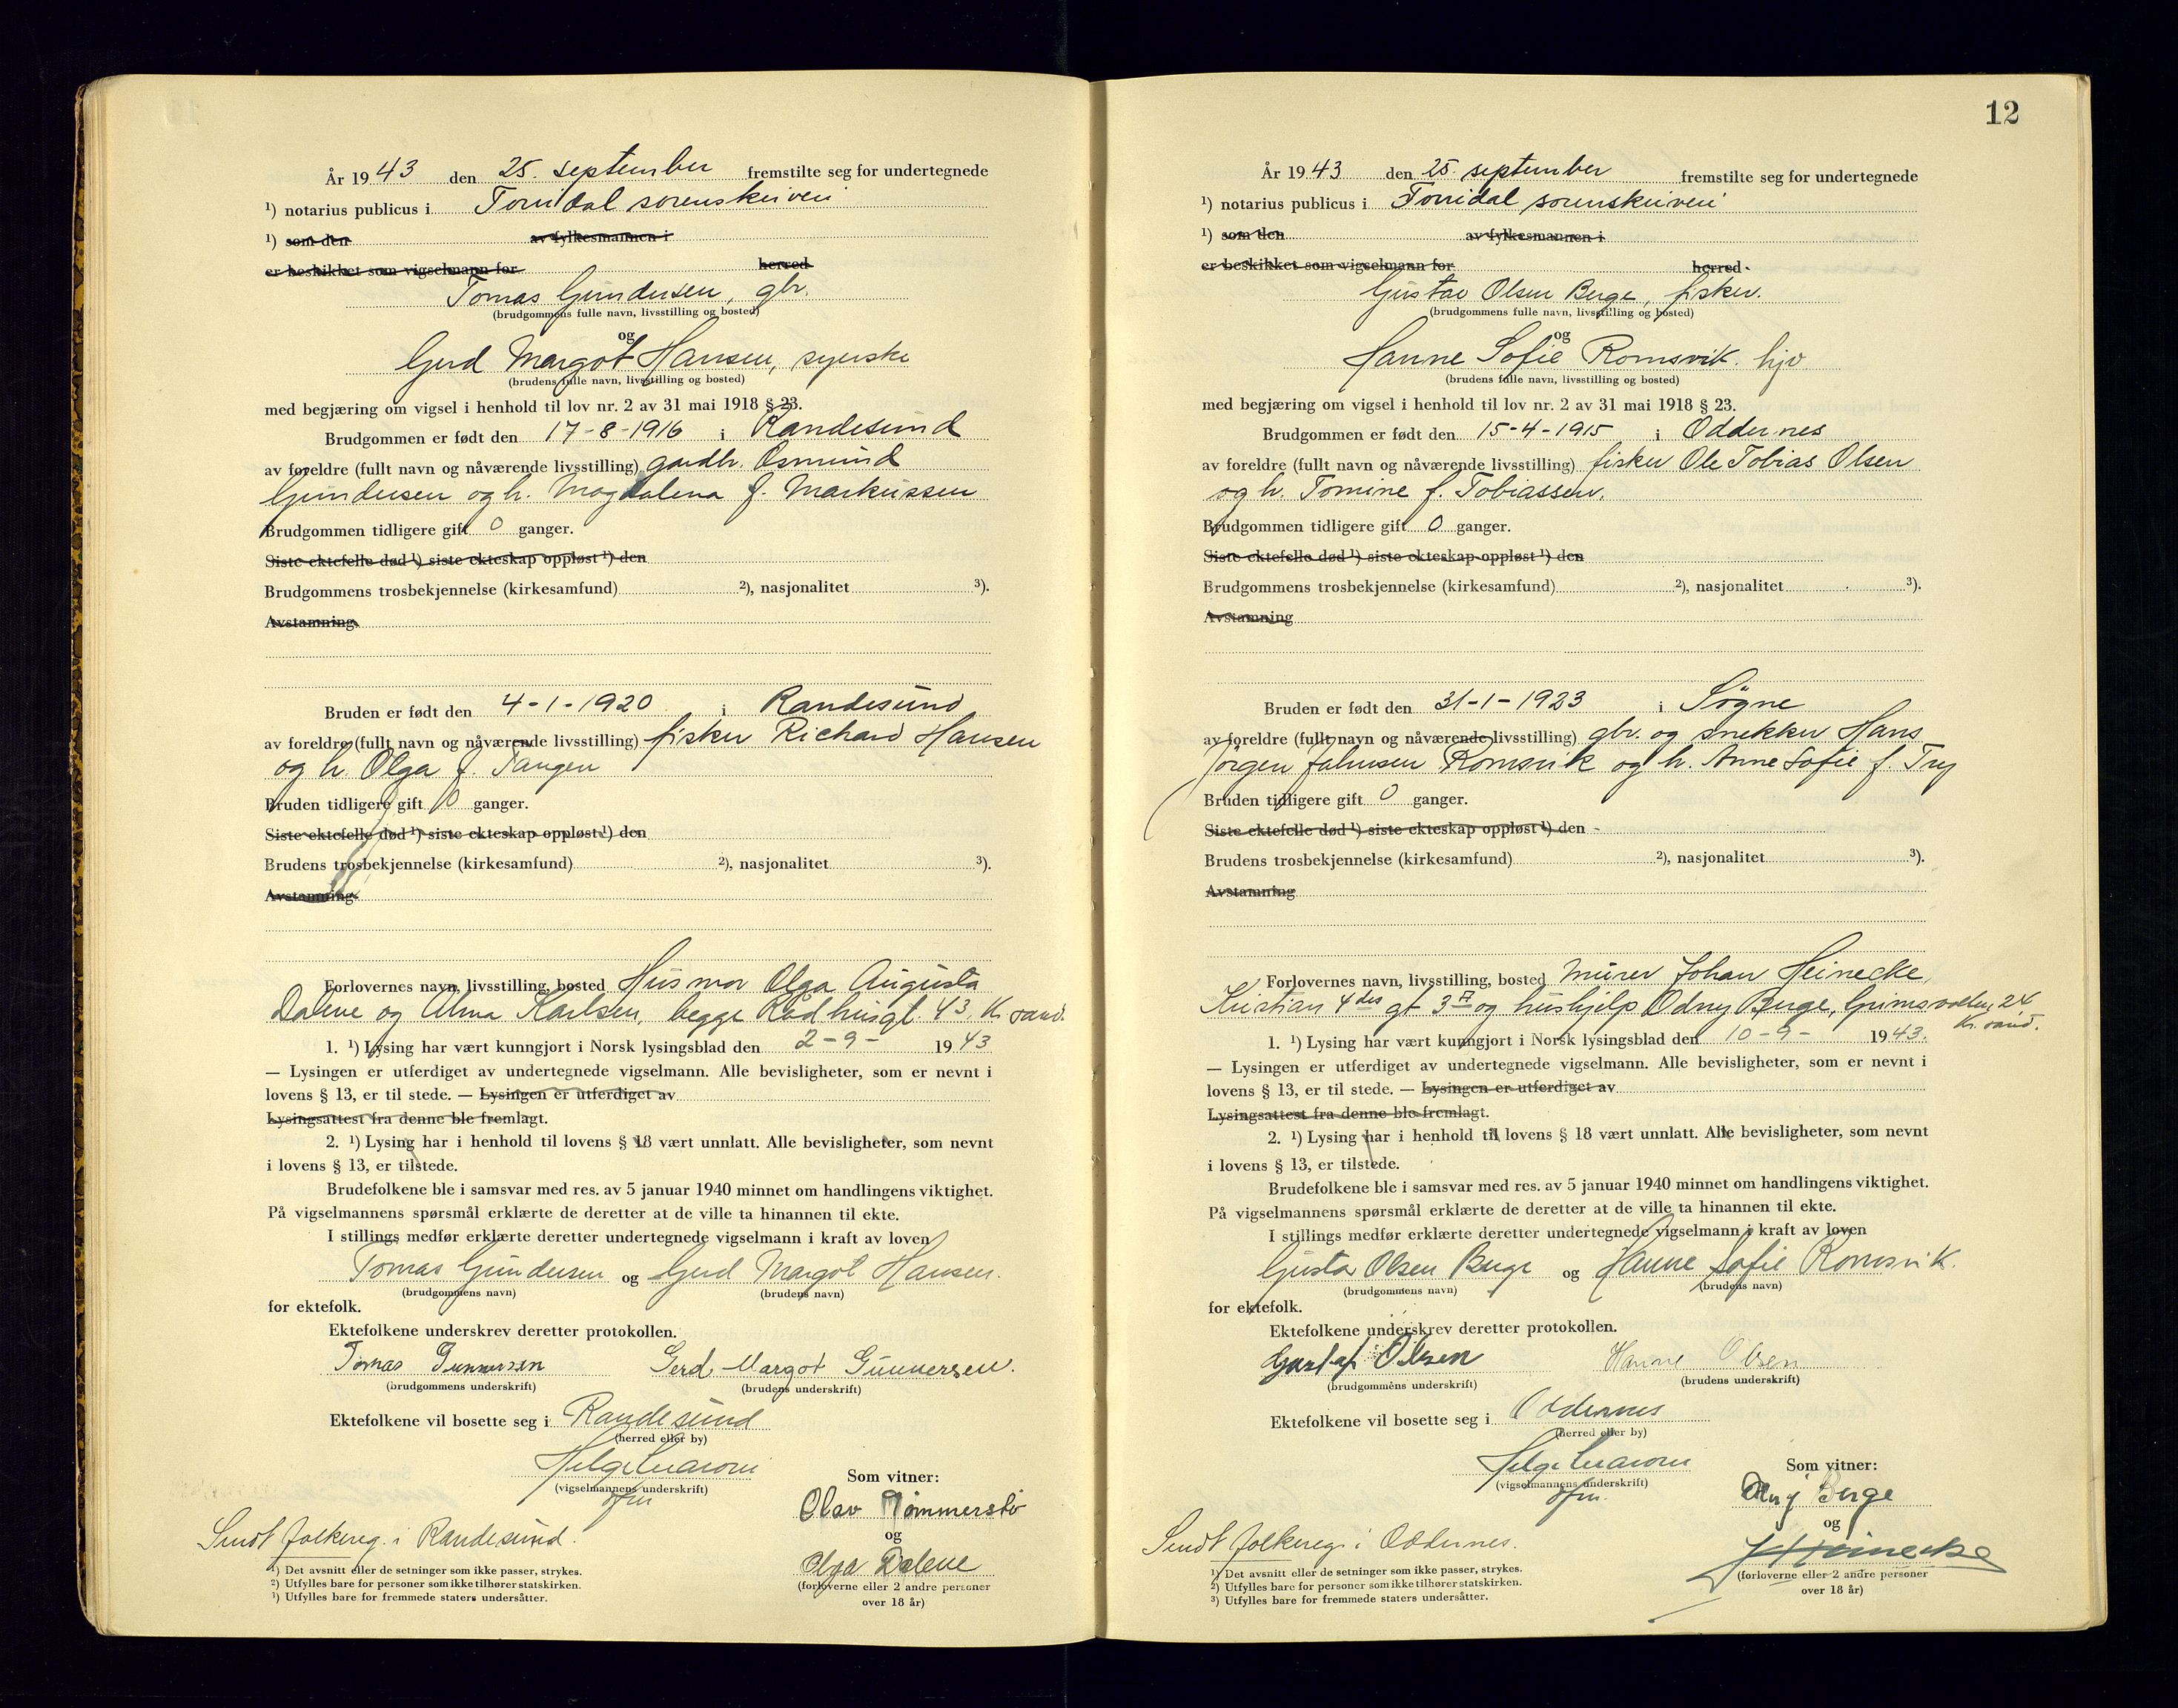 År 1943 den 25. september fremstilte seg for undertegnede
¹) notarius publicus i Torridal sorenskriveri
¹) som den av fylkesmannen i
er beskikket som vigselmann for herred
Tomas Gundersen, gbr.
(brudgommens fulle navn, livsstilling og bosted)
og
Gerd Margot Hansen, syerske
(brudens fulle navn, livsstilling og bosted)
med begjæring om vigsel i henhold til lov nr. 2 av 31 mai 1918 § 23.
Brudgommen er født den 17-8-1916 i Randesund
av foreldre (fullt navn og nåværende livsstilling) gardbr. Osmund
Gundersen og h. Magdalena f. Markussen
Brudgommen tidligere gift 0 ganger.
Siste ektefelle død ¹) siste ekteskap oppløst ¹) den
Brudgommens trosbekjennelse (kirkesamfund) ²), nasjonalitet ³).
Avstamning
Bruden er født den 4-1-1920 i Randesund
av foreldre (fullt navn og nåværende livsstilling) fisker Richard Hansen
og h. Olga f. Tangen
Bruden tidligere gift 0 ganger.
Siste ektefelle død ¹) siste ekteskap oppløst ¹) den
Brudens trosbekjennelse (kirkesamfund) ²), nasjonalitet ³).
Avstamning
Forlovernes navn, livsstilling, bosted Husmor Olga Augusta
Dalene og Alma Karlsen, begge Rådhusgt. 43, Kr.sand.
1. ¹) Lysing har vært kunngjort i Norsk lysingsblad den 2-9- 1943
— Lysingen er utferdiget av undertegnede vigselmann. Alle bevisligheter, som er nevnt i
lovens § 13, er til stede. — Lysingen er utferdiget av
Lysingsattest fra denne ble fremlagt.
2. ¹) Lysing har i henhold til lovens § 18 vært unnlatt. Alle bevisligheter, som nevnt
i lovens § 13, er tilstede.
Brudefolkene ble i samsvar med res. av 5 januar 1940 minnet om handlingens viktighet.
På vigselmannens spørsmål erklærte de deretter at de ville ta hinannen til ekte.
I stillings medfør erklærte deretter undertegnede vigselmann i kraft av loven
Tomas Gundersen og Gerd Margot Hansen.
(brudgommens navn) (brudens navn)
for ektefolk.
Ektefolkene underskrev deretter protokollen.
Tomas Gunnersen Gerd Margot Gunnersen.
(brudgommens underskrift) (brudens underskrift)
Ektefolkene vil bosette seg i Randesund
(herred eller by)
(vigselmannens underskrift)
Som vitner:
Olav Tømmerstø
og
Olga Dalene
(forloverne eller 2 andre personer
over 18 år)
Sendt folkereg. i Randesund.
¹) Det avsnitt eller de setninger som ikke passer, strykes.
²) Utfylles bare for personer som ikke tilhører statskirken.
³) Utfylles bare for fremmede staters undersåtter.
12
År 1943 den 25. september fremstilte seg for undertegnede
¹) notarius publicus i Torridal sorenskriveri
¹) som den av fylkesmannen i
er beskikket som vigselmann for herred
Gustav Olsen Berge, fisker.
(brudgommens fulle navn, livsstilling og bosted)
og
Hanne Sofie Romsvik. hjv
(brudens fulle navn, livsstilling og bosted)
med begjæring om vigsel i henhold til lov nr. 2 av 31 mai 1918 § 23.
Brudgommen er født den 15-4-1915 i Oddernes
av foreldre (fullt navn og nåværende livsstilling) fisker Ole Tobias Olsen
og h. Tomine f. Tobiassen.
Brudgommen tidligere gift 0 ganger.
Siste ektefelle død ¹) siste ekteskap oppløst ¹) den
Brudgommens trosbekjennelse (kirkesamfund) ²), nasjonalitet ³).
Avstamning
Bruden er født den 31-1-1923 i Søgne
av foreldre (fullt navn og nåværende livsstilling) gbr. og snekker Hans
Jørgen Johnsen Romsvik og h. Anne Sofie f. Try
Bruden tidligere gift 0 ganger.
Siste ektefelle død ¹) siste ekteskap oppløst ¹) den
Brudens trosbekjennelse (kirkesamfund) ²), nasjonalitet ³).
Avstamning
Forlovernes navn, livsstilling, bosted Murer Johan Heinecke,
Kristian 4des gt 37 og hushjelp Odny Berge, Grimsvollen 24
Kr.sand.
1. ¹) Lysing har vært kunngjort i Norsk lysingsblad den 10-9- 1943.
— Lysingen er utferdiget av undertegnede vigselmann. Alle bevisligheter, som er nevnt i
lovens § 13, er til stede. — Lysingen er utferdiget av
Lysingsattest fra denne ble fremlagt.
2. ¹) Lysing har i henhold til lovens § 18 vært unnlatt. Alle bevisligheter, som nevnt
i lovens § 13, er tilstede.
Brudefolkene ble i samsvar med res. av 5 januar 1940 minnet om handlingens viktighet.
På vigselmannens spørsmål erklærte de deretter at de ville ta hinannen til ekte.
I stillings medfør erklærte deretter undertegnede vigselmann i kraft av loven
Gustav Olsen Berge og Hanne Sofie Romsvik.
(brudgommens navn) (brudens navn)
for ektefolk.
Ektefolkene underskrev deretter protokollen.
Gustaf Olsen Hanne Olsen
(brudgommens underskrift) (brudens underskrift)
Ektefolkene vil bosette seg i Oddernes
(herred eller by)
(vigselmannens underskrift)
Som vitner:
Odny Berge
og
J Heinecke
(forloverne eller 2 andre personer
over 18 år)
Sendt folkereg. i Oddernes.
¹) Det avsnitt eller de setninger som ikke passer, strykes.
²) Utfylles bare for personer som ikke tilhører statskirken.
³) Utfylles bare for fremmede staters undersåtter.